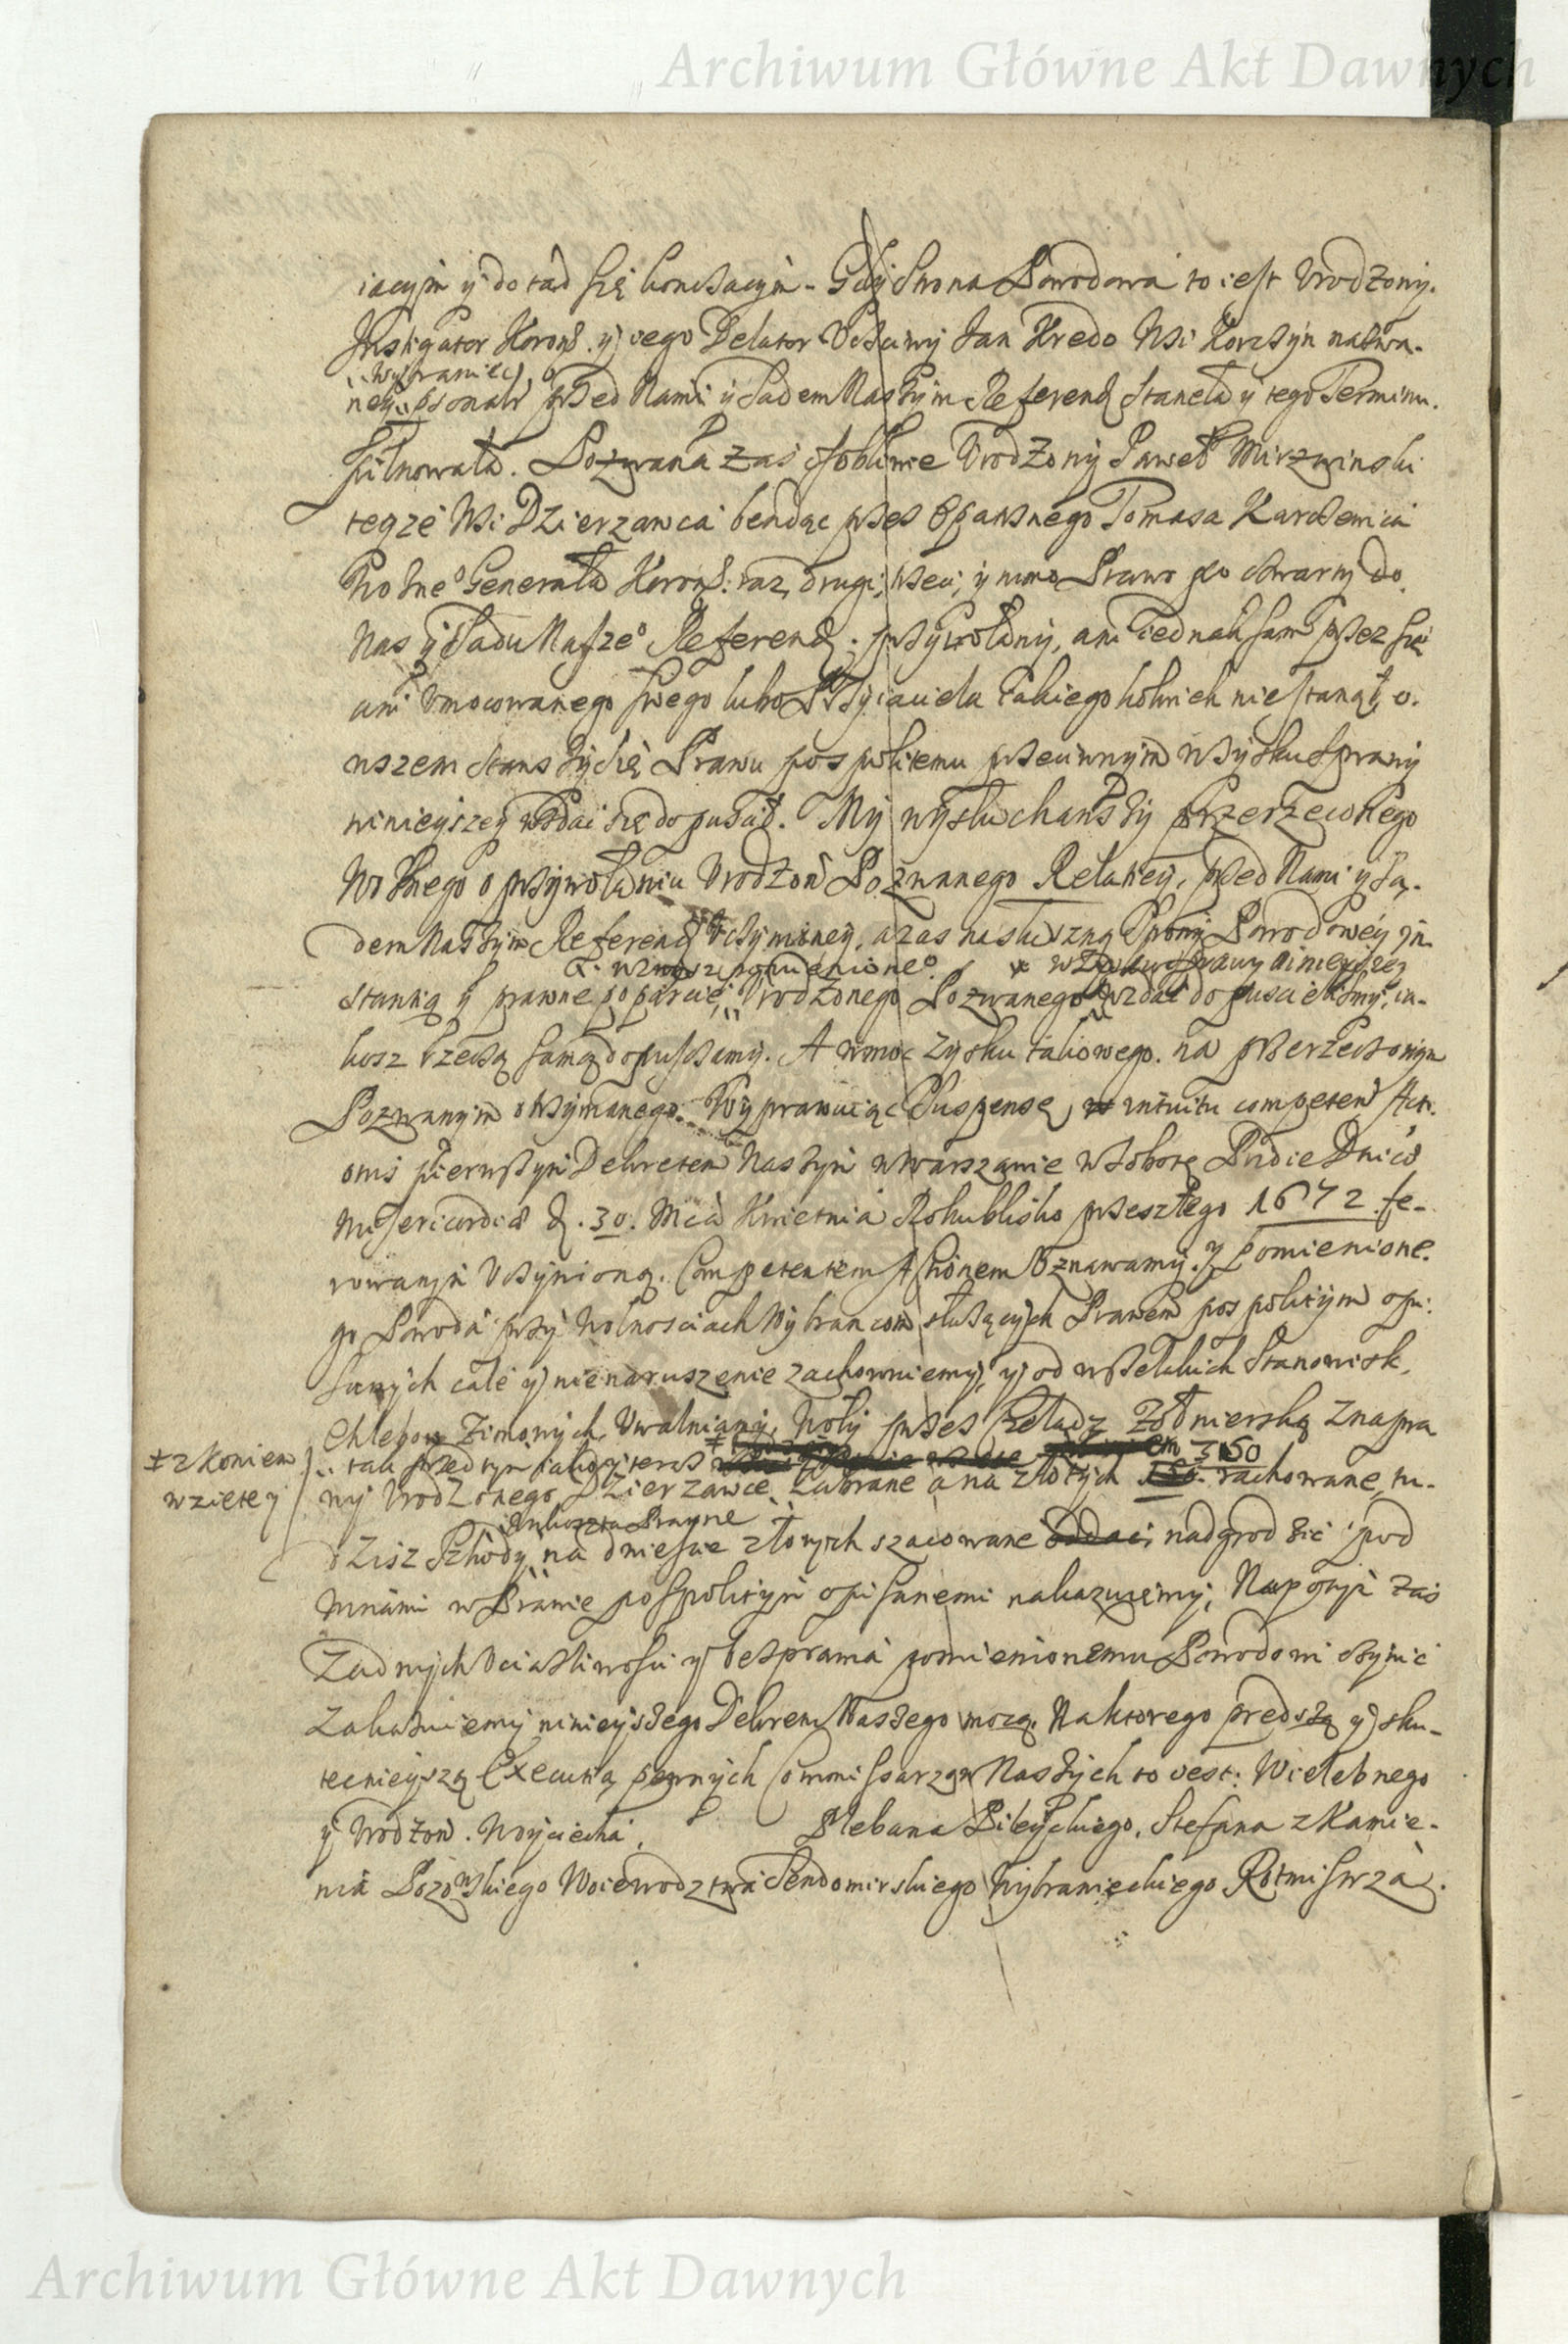 Archiwum Główne Akt Dawnych
iacym y do tąd się konczącym - Gdy Strona Powodowa to iest Urodzony
Instigator Koron. y iego Delator Uczciwy Jan Kredo Wsi Korczyn nazwa-
Wybraniec
ney psonalr przed Nami y Sądem Naszym Referend. stanęła y tego Terminu
pilnowała. Pozwana zas osobliwie Urodzony Paweł
teyze Wsi Dzierzawca bendąc przes Opatrznego Tomasa
Wozne° Generała Koron. raz, drugi, trzeci, y mimo Prawo po czwarty do
Nas y Sądu Nasze° Referend. przywołany, ani iednak sam przez się
ani umocowanego swego lubo Przyiaciela iakiego kolwiek nie stanął, o-
wszem Prawu pospolitemu przeciwnym w zysku sprawy
ninieyszey wzdać się dopuścił. My wysłuchawszy przerzeczonego
Woznego o przywołaniu Urodzon. Pozwanego Relatiey, przed Nami y Są-
dem Naszym Referend. uczynioney, a zas na słuszną Strony Powodowey in-
wzwysz pomienione° w zysku sprawy ninieyszey
stantią y prawne poparcie, Urodzonego Pozwanego wzdać dopuscielismy, ia-
kosz rzeczą samą dopuszczamy. A w moc zysku takowego na przerzeczonym
Pozwanym otrzymanego. Wyprawuiąc Suspensę, intuitu competen. Acti-
onis pierwszym Dekretem Naszym w Warszawie w Sobotę Pridie Dnica
Misericordia d. 30. Mca Kwietnia Roku blisko przeszłego 1672 fe-
rowanym uczynioną. Competentem Actionem uznawamy. Y pomienione-
go Powoda przy Wolnosciach Wybrancom słuzących Prawem pospolitym opi-
sanych całe y nienaruszenie zachowuiemy, y od wszelakich Stanowisk,
Chlebow Zimowych, Uwalniamy, Woły przes Czeladz Zołnierską z napra
± z koniem tak przed tym iako y teraz 350
wziętey ny Urodzonego Dzierzawce zabrane a na złotych rachowane, tu-
Prawne
dzisz Szkody na dwiescie złotych szacowane nadgrodzić pod
winami w Prawie pospolitym opisanemi nakazuiemy; Napotym zas
Zadnych uciązliwosci y besprawia pomienionemu Powodowi czynic
zakazuiemy ninieyszego Dekretu Naszego mocą. Na ktorego prędszą y sku-
tecznieyszą Executią pewnych Commissarzow Naszych to iest: Wielebnego
y Urodzon. Woyciecha, Plebana Pileyckiego, Stefana z Kamie-
nia Woiewodztwa Sendomirskiego Wybranieckiego Rotmistrza.
Archiwum Główne Akt Dawnych